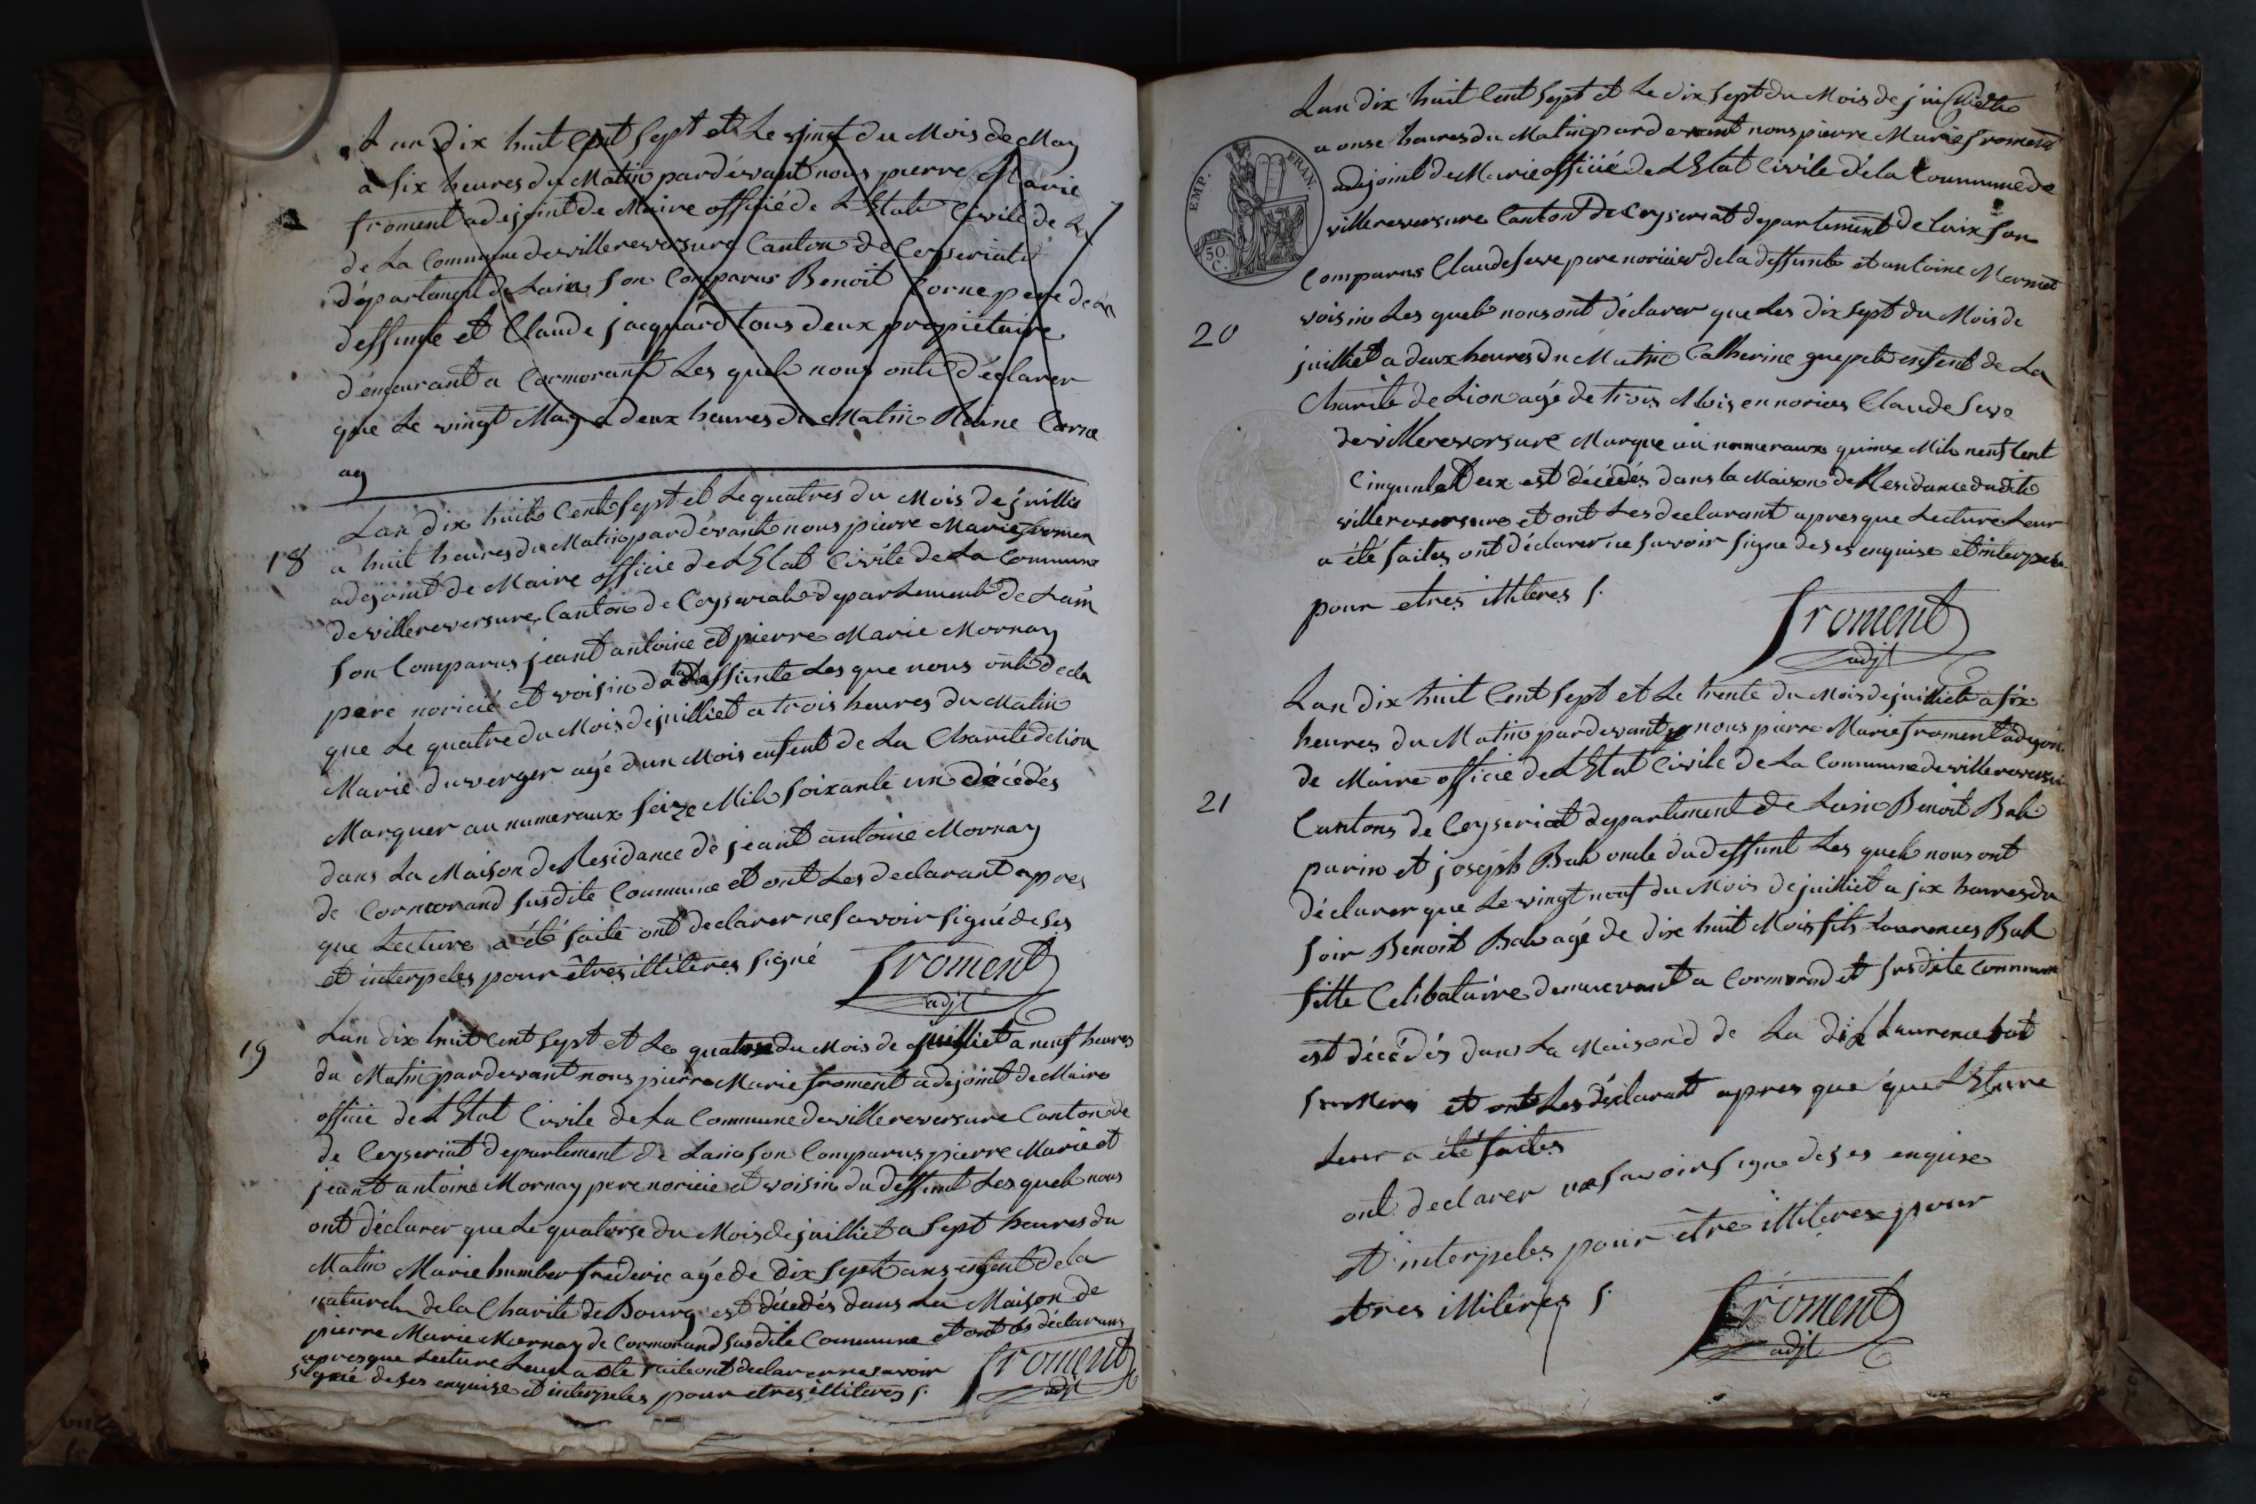 Lan Dix huit Cent Sept et Le vingt du Mois de May
a Six heures du Matin pardevant nous pierre Marie
froment adejoint de Maire officié de L'Etat Civile de La
de La Commune de villereversure Canton de Ceyseriat
département de Lain Son Comparus Benoit Corne pere de La
deffunte et Claude jacquard tous deux propietaire
démeurant a Cormorant Les quels nous ont déclarer
que Le vingt May a deux heures du Matin Corne
ag
18
Lan dix huit Cent Sept et Le quatres du Mois de juillie
a huit heures du Matin pardevant nous pierre Marie fromen
adejoint de Maire officie de L'Etat Civile de La Commune
de villereversure Canton de Ceyseriat departement de Lain
Son Comparus jeant antoine et pierre Marie Mornay
pere noricié et voisin de la deffunte Les que nous ont decla
que Le quatre du Mois de juilliet a trois heures du Matin
Marie duverger agé dun Mois enfent de La Charité de Lion
Marquer au numeraux Seize Mile Soixante un décédés
dans La Maison de Residance de jeant antoine Mornay
de Cormorand Susdite Commune et ont Les declarant apres
que Lecture a été faite ont declarer ne Savoir Signé de Ses
et interpeles pour êtres illiteres Signé froment
adjt
19
Lan dix huit Cent Sept et Le quatorse du Mois de juilliet a neuf heures
du Matin pardevant nous pierre Marie froment adejoint de Maire
officie de L'Etat Civile de La Commune de villereversure Canton de
de Ceyseriat departement de Lain Son Comparus pierre Marie et
jeant antoine Mornay pere noricie et voisin du deffunt Les quels nous
ont déclarer que Le quatorse du Mois de juilliet a Sept heures du
Matin Marie humber frederic agé de dix Sept ans enfent de la
naturel de la Charite de Bourg est décédés dans La Maison de
pierre Marie Mornay de Cormorand Susdite Commune et ont Les déclarans
apres que Lecture Leur a été faite ont declarer ne Savoir
Signé de Ses enquise et interpeles pour etres illiteres S. froment
adjt
EMP. FRAN.
50 C.
20
Lan dix huit Cent Sept et Le dix Sept du Mois de juilliette
a onse heures du Matin pardevant nous pierre Marie froment
adejoint de Marie officié de L'Etat Civile de la Commune de
villereversure Canton de Ceyseriat departement de Lain Son
Comparus Claude Seve pere noricier de la deffunte et antoine Mermet
voisin Les quels nous ont déclarer que Les dix Sept du Mois de
juilliet a deux heures du Matin Catherine enfent de La
Charité de Lion agé de trois Mois en Claude Seve
de villereversure Marque au numeraux quinse Mile neuf Cent
Cinquente Deux est décédés dans la Maison de Residance dudite
villereversure et ont Les declarant apres que Lecture Leur
a été faites ont déclarer ne Savoir Signe de Ses enquise et interpeles
pour etres illiteres S.
froment
adjt
21
Lan dix huit Cent Sept et Le trente du Mois de juilliete a Six
heures du Matin pardevant nous pierre Marie froment adejoin
de Maire officie de L'Etat Civile de La Commune de villereversur
Cantons de Ceyseriat departement de Lain Benoit Bab
parin et joseph Bab oncle du deffunt Les quels nous ont
déclarer que Le vingt neuf du Mois de juilliet a Six heures du
Soir Benoit Bab agé de dix huit Mois fils Laurences Bab
fille Celibataire demeurant a Cormorand et Susdite Commune
est décédés dans La Maisond de La dite Laurence
et ont Les déclarant apres que que
Leur a été faites
ont declarer ne Savoir Signe de Ses enquise
et interpeles pour être illiteres pour
etres illiteres S.
froment
adjt